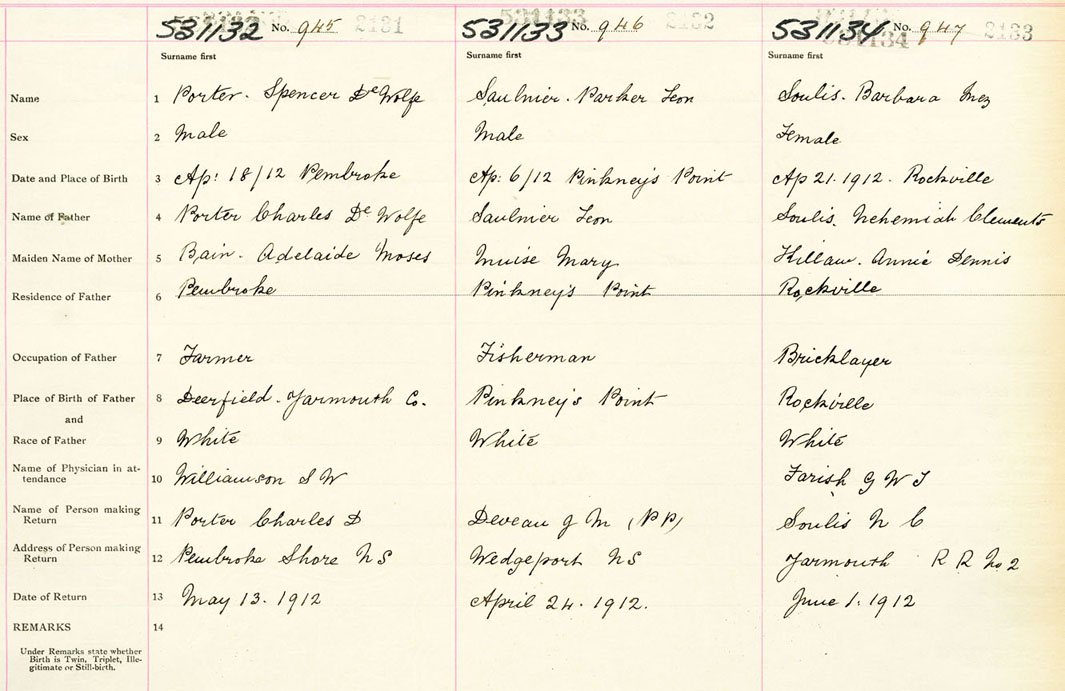 531132 No. 945 2131 531133 No. 946 2132 531134 No. 947 2133
Surname first Surname first Surname first
Name 1 Porter. Spencer De Wolfe Saulnier. Parker Leon Soulis. Barbara Inez
Sex 2 Male Male Female
Date and Place of Birth 3 Ap: 18/12 Pembroke Ap: 6/12 Pinkney's Point Ap 21. 1912. Rockville
Name of Father 4 Porter Charles De Wolfe Saulnier Leon Soulis. Nehemiah Clements
Maiden Name of Mother 5 Bain. Adelaide Moses Muise Mary Killam. Annie Dennis
Residence of Father 6 Pembroke Pinkney's Point Rockville
Occupation of Father 7 Farmer Fisherman Bricklayer
Place of Birth of Father 8 Deerfield. Yarmouth Co. Pinkney's Point Rockville
and
Race of Father 9 White White White
Name of Physician in at-
tendance 10 Williamson S W Farish G W T
Name of Person making
Return 11 Porter Charles D Deveau J M (PP) Soulis N C
Address of Person making
Return 12 Pembroke Shore NS Wedgeport NS Yarmouth R R No 2
Date of Return 13 May 13. 1912 April 24. 1912. June 1. 1912
REMARKS 14
Under Remarks state whether
Birth is Twin, Triplet, Ille-
gitimate or Still-birth.